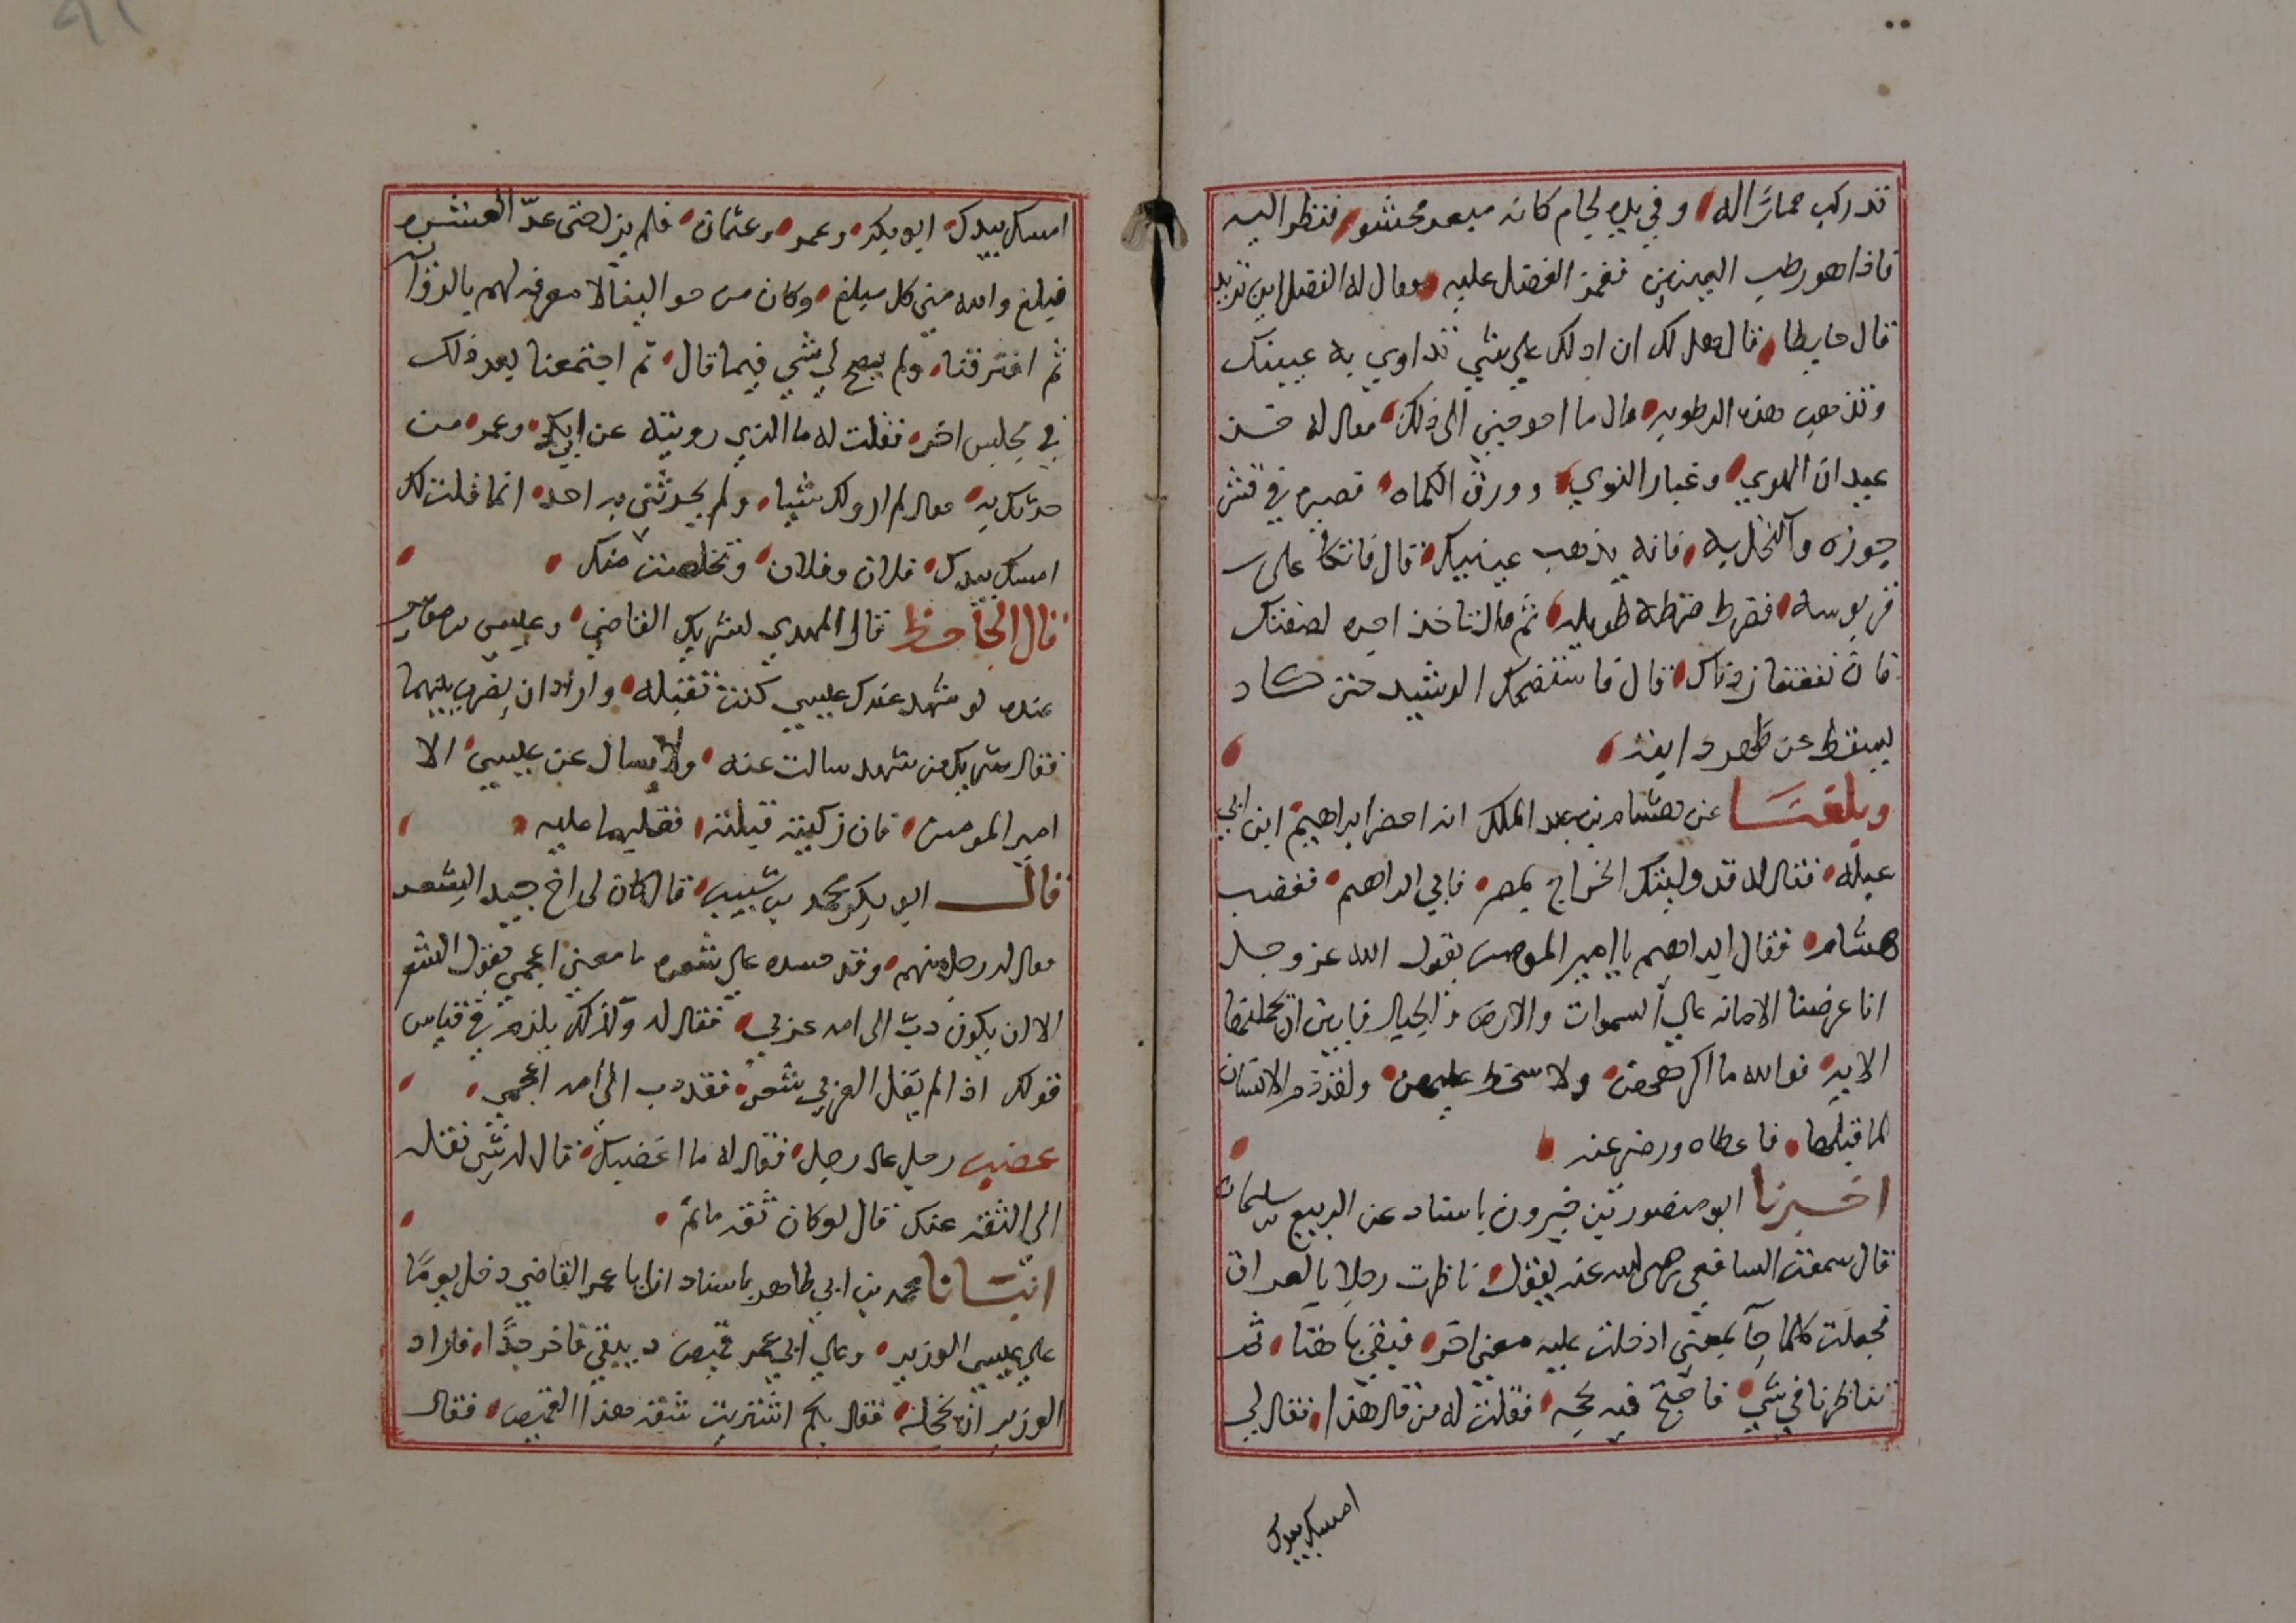 قد ركب حمارا له وفي يده لجام كانه مبعر محشو فنظر اليه
فاذا هو رطب العينين فغمز الفضل عليه فقال له الفضل اين تريد
قال حايطا قال هل لك ان ادلك على شي تداوي به عينيك
وتذهب هذه الرطوبه قال ما احوجني الى ذلك فقال له خذ
عيدان الهوي وغبار النوي وورق الكماه فصيره في قشر
جوزه واكتحل به فانه يذهب عينيك قال فاتكا على
قربوسه فضرط ضرطة طويله ثم قال تاخذ اجره لصفتك
فان نفعتنا زدناك قال فاستضحك الرشيد حتى كاد
يسقط عن ظهر دابته
وبلغنا عن هشام بن عبد الملك انه احضر ابراهيم ابن ابي
عبله فقال له قد وليتك الخراج بمصر فابي ابراهيم فغضب
هشام فقال ابراهيم يا امير المومنين يقول الله عز وجل
انا عرضنا الامانه على السموات والارض والجبال فابين ان يحملنها
الايه فوالله ما اكرههن ولا سخط عليهن ولقد ذم الانسان
لما قبلها فاعطاه ورضي عنه
اخبرنا ابو منصور بن خيرون باسناد عن الربيع بن سليمان
قال سمعت الشافعي رضي الله عنه يقول ناظرت رجلا بالعراق
فجعلت كلما جآ بمعني ادخلت عليه معني اخر فبقي باهتا ثم
تناظرنا في شي فاحتج فيه بحجه فقلت له من قال هذا فقال لي
امسك بيدك
امسك بيدك ابو بكر وعمر وعثمان فلم يزل حتى عدّ العشره
فبلغ والله مني كل مبلغ وكان من حوالينا لا معرفه لهم بالرواية
ثم افترقنا ولم يصح لي شي فيما قال ثم اجتمعنا بعد ذلك
في مجلس اخر فقلت له ما الذي رويته عن ابي بكر وعمر من
حدثك به فقال لم ارو لك شيا ولم يحدثني به احد انما قلت لك
امسك بيدك فلان وفلان وتخلصت منك
قال الجاحظ قال المهدي لشريك القاضي وعيسى بن موسى
عنده لو شهد عندك عيسى كنت تقبله واراد ان يضرب بينهما
فقال شريك من شهد سالت عنه ولا يسال عن عيسى الا
امير المومنين فان زكيته قبلته فقلبها عليه
قال ابو بكر محمد بن شبيب قال كان لى اخ جيد الشعر
فقال له رجل منهم وقد حسده على شعره ما معني اعجمي يقول الشعر
الا ان يكون دبّ الى امه عربي فقال له وكذلك يلزم في قياس
قولك اذا لم يقل العربي شعرا فقد دب الى امه اعجمي
غضب رجل على رجل فقال له ما اغضبك قال له شي نقله
الى الثقه عنك قال لو كان ثقه ما نمّ
انبانا محمد بن ابي طاهر باسناد ان ابا عمر القاضي دخل يوما
على عيسى الوزير وعلى ابي عمر قميص دبيقي فاخر جدًا فاراد
الوزير ان يخجله فقال بكم اشتريت شقه هذا القميص فقال